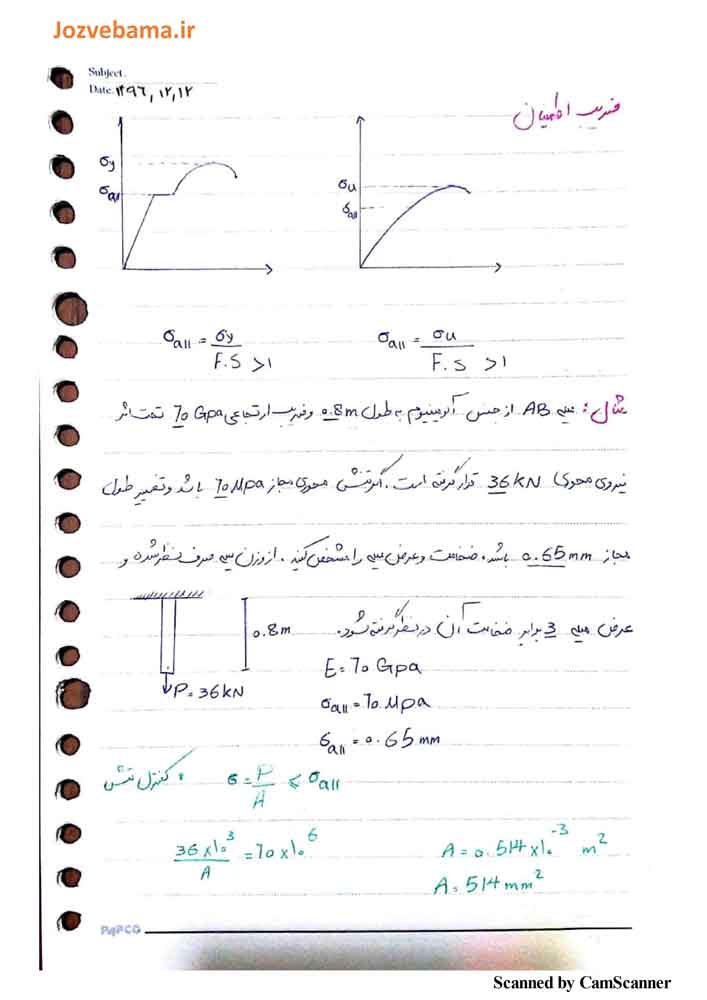 Jozvebama.ir
Subject.
Date. ۱۳۹۶,۱۲,۱۲
ضریب اطمینان
σy
σall
σu
σall
σall = σy / F.S >۱
σall = σu / F.S >۱
مثال: میله AB از جنس آلومینیوم به طول 0.8m و ضریب ارتجاعی 70 Gpa تحت اثر
نیروی محوری 36kN قرار گرفته است. اگر تنش محوری مجاز 70 Mpa باشد و تغییر طول
مجاز 0.65 mm باشد. ضخامت و عرض میله را مشخص کنید. از وزن میله صرف نظر شده و
عرض میله 3 برابر ضخامت آن در نظر گرفته شود.
0.8m
P=36kN
E=70 Gpa
σall=70 Mpa
δall=0.65 mm
کنترل تنش: σ=P/A ⩽ σall
36×10^3/A =70×10^6
A=0.514×10^-3 m^2
A=514 mm^2
PAPCO
Scanned by CamScanner